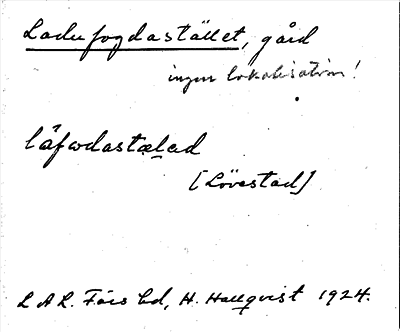 Ladufogdastället, gård
ingen lokalisation!
låfωdastælεd
[Lövestad]
L A L. Färs hd, H. Hallqvist 1924.